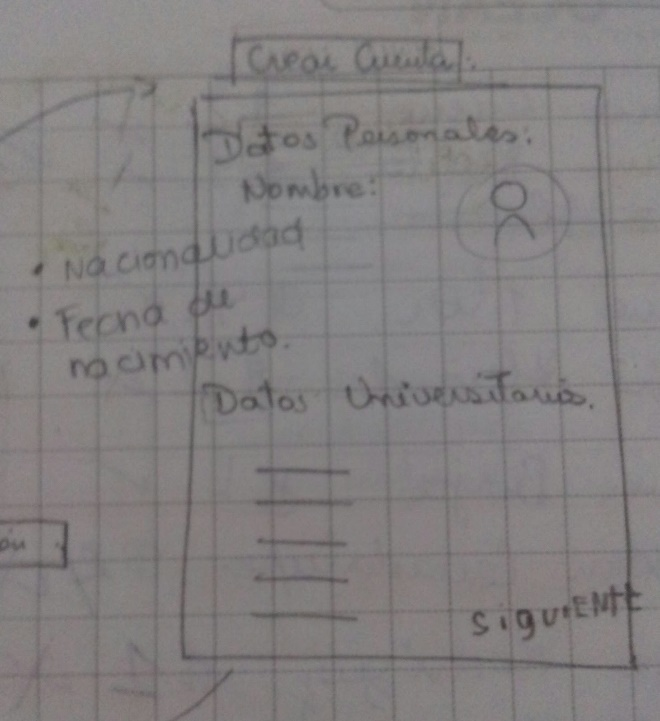 Crear Cuenta.
Datos Personales:
Nombre:
• Nacionalidad
• Fecha de
nacimiento.
Datos Universitarios.
SiguiENTE